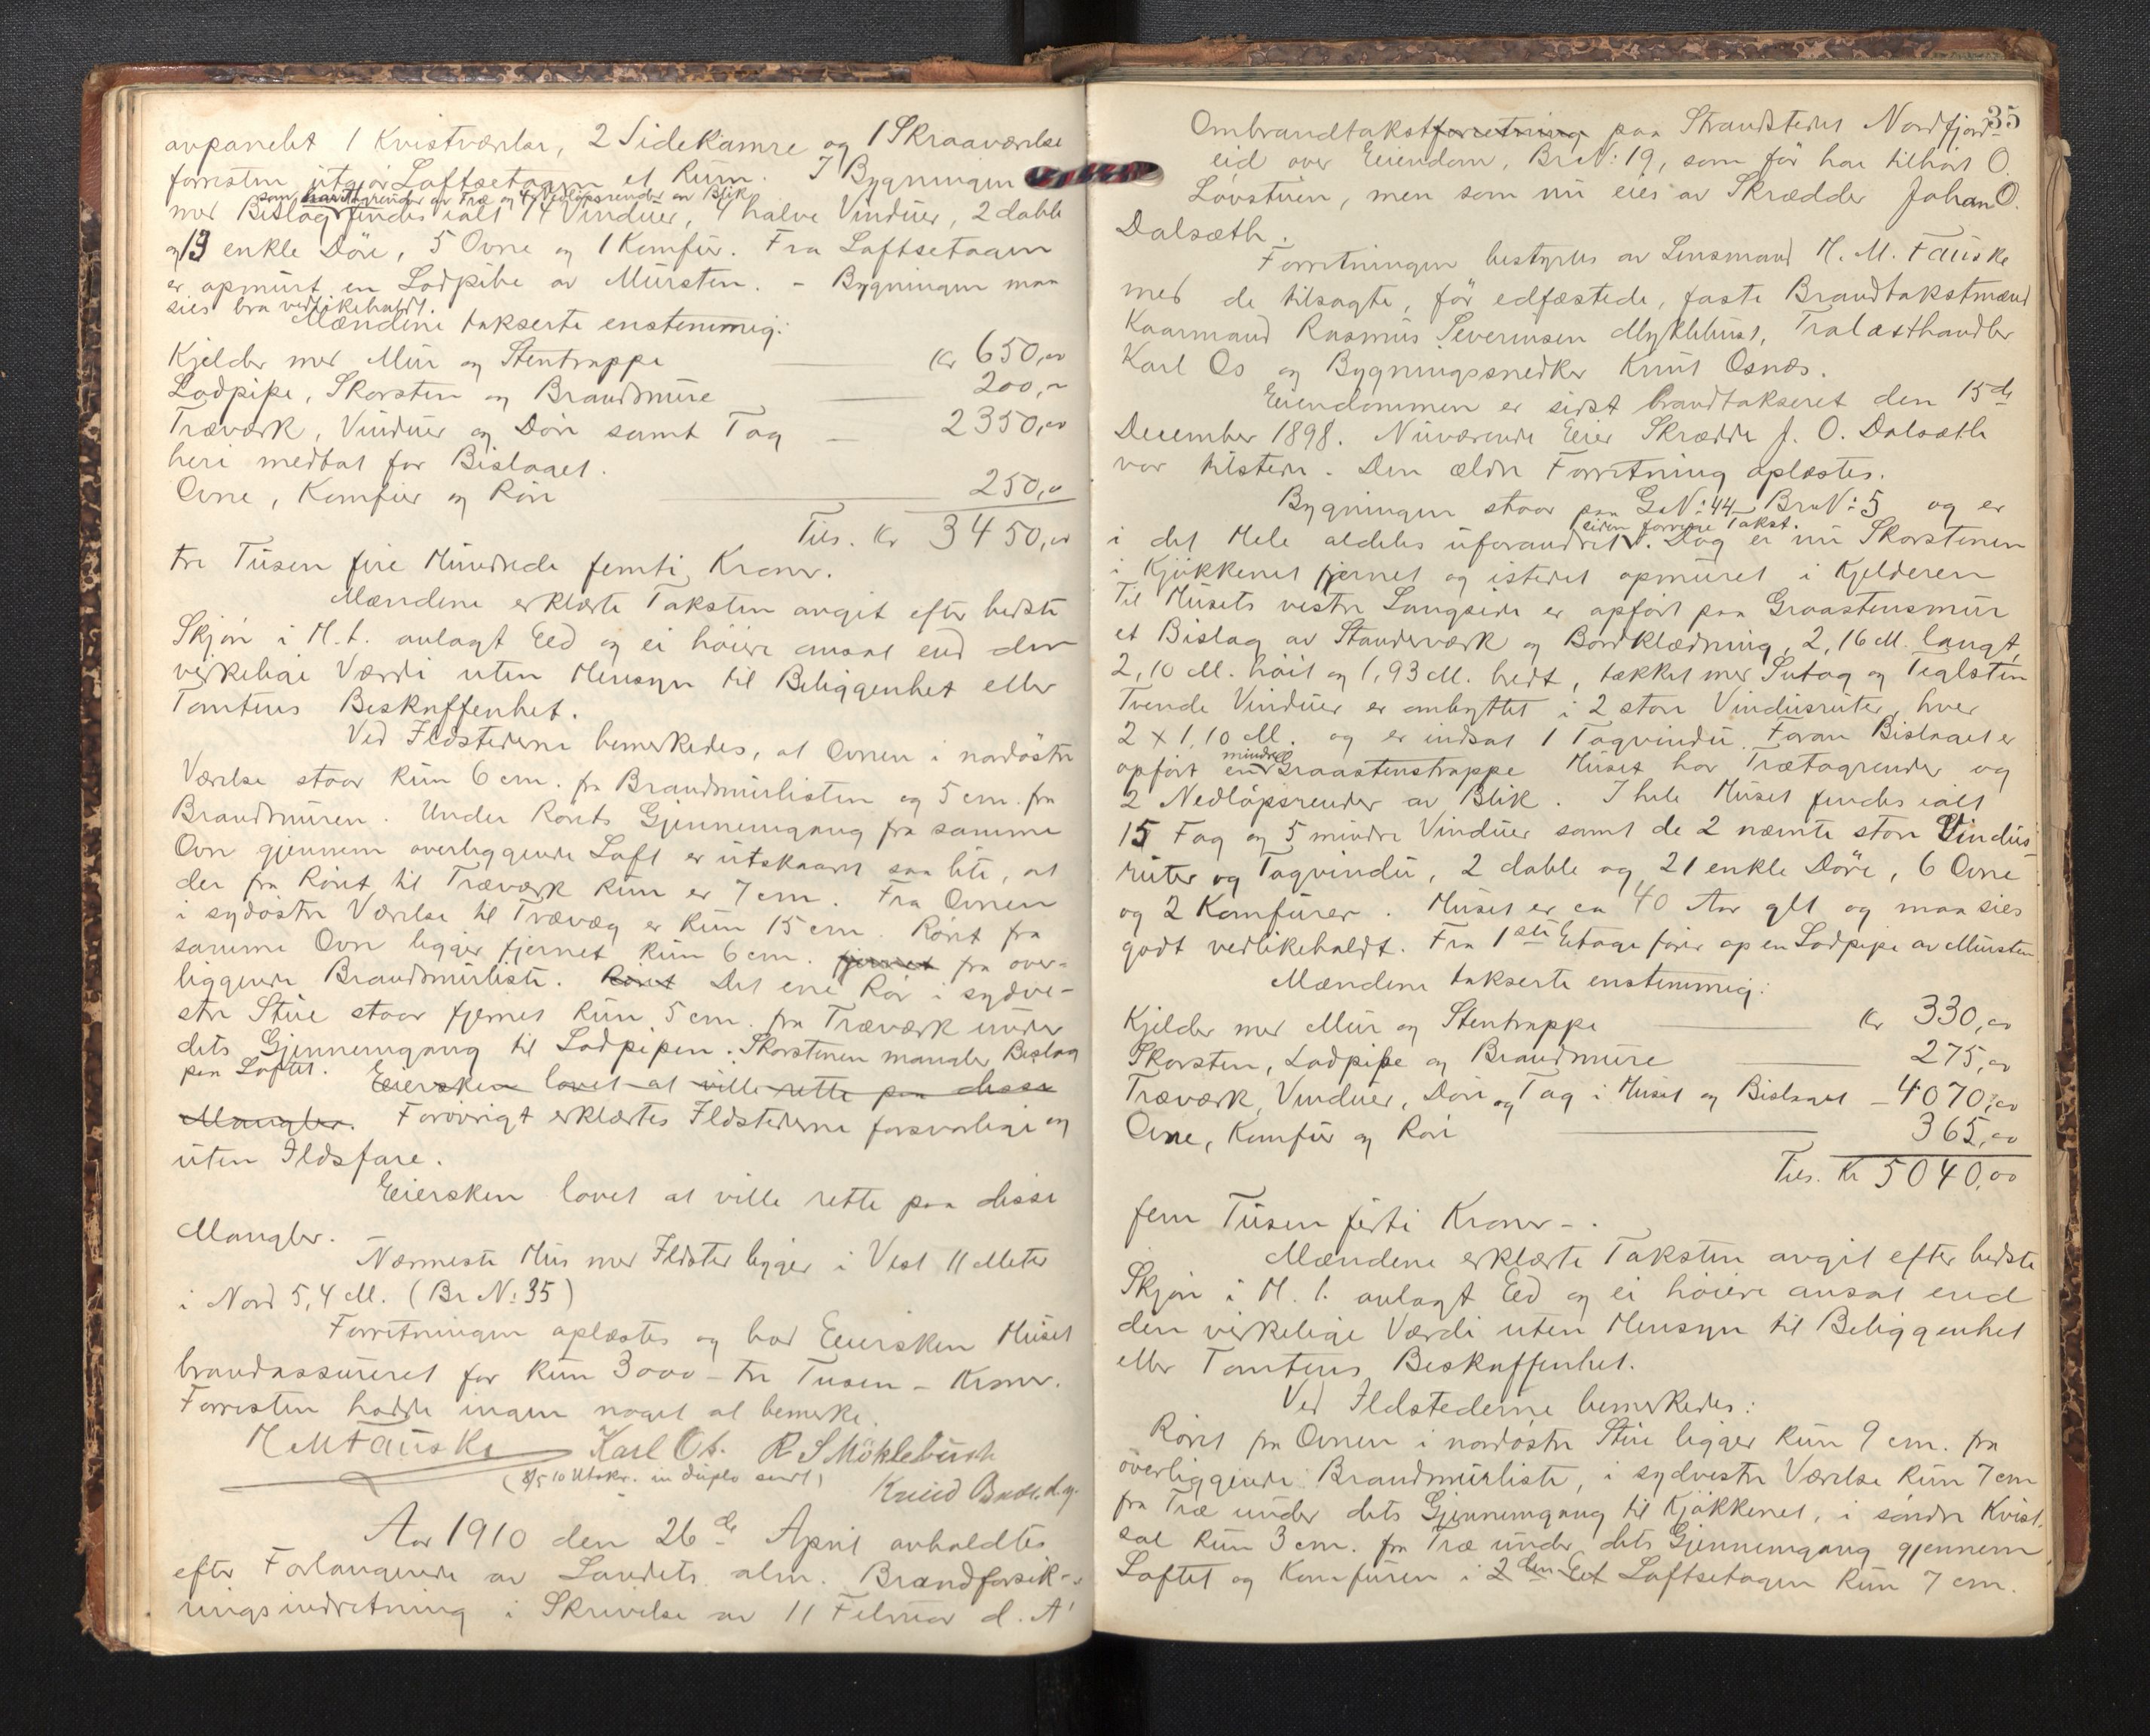 avpanelt 1 Kvistværelse, 2 Sidekamre og 1 Skraaværelse
forresten utgjør Loftsetagen et Rum. I Bygningen
som har Tagrender av Træ og 4 Nedløpsrender av Blik
med Bislag findes ialt 14 Vinduer, 4 halve Vinduer, 2 doble
og 13 enkle Døre, 5 Ovne og 1 Komfur. Fra Loftsetagen
er opmurt en Lodpibe av Mursten. - Bygningen maa
sies bra vedlikeholdt.
Mændene takserte enstemmig:
Kjelder med Mur og Stentrappe Kr 650,00
Lodpipe, Skorsten og Brandmure 200,-
Træværk, Vinduer og Døre samt Tag - 2350,00
heri medtat for Bislaget.
Ovne, Komfur og Rør 250,00
Tils. Kr 3450,00
tre Tusen fire Hundrede femti Kroner.
Mændene erklærte Taksten avgit efter bedste
Skjøn i H. t. avlagt Eed og ei høiere ansat end den
virkelige Værdi uten Hensyn til Beliggenhet eller
Tomtens Beskaffenhet.
Ved Ildstederne bemerkedes, at Ovnen i nordøstre
Værelse staar kun 6 cm. fra Brandmurlisten og 5 cm. fra
Brandmuren. Under Rørets Gjennemgang fra samme
Ovn gjennem overliggende Loft er utskaaret saa lite, at
der fra Røret til Træværk kun er 7 cm. Fra Ovnen
i sydøstre Værelse til Trævæg er kun 15 cm. Røret fra
samme Ovn ligger fjernet kun 6 cm. fjernet fra over-
liggende Brandmurliste. Røret Det ene Rør i sydve-
stre Stue staar fjernet kun 5 cm. fra Træværk under
dets Gjennemgang til Lodpipen. Skorstenen mangler Beslag
paa Loftet. Eiersken lovet at ville rette paa disse
Mangler. Forøvrigt erklærtes Ildstederne forsvarlige og
uten Ildsfare.
Eiersken lovet at ville rette paa disse
Mangler.
Nærmeste Hus med Ildsted ligger i Vest 11 Meter
i Nord 5,4 M. (Br. N: 35)
Forretningen oplæstes og bad Eiersken Huset
brandassureret for kun 3000 - tre Tusen - Kroner.
Forresten hadde ingen noget at bemerke.
H M Fauske Karl Os. R S Möklebust
(3/5 10 Utskr. in duplo sendt) Knud Osnes d.y.
Aar 1910 den 26de April avholdtes
efter Forlangende av Landets alm. Brandforsik-
ringsindretning i Skrivelse av 11 Februar d. A.
35
Ombrandtakstforretning paa Strandstedet Nordfjord-
eid over Eiendom, Br. N: 19, som før har tilhørt O.
Løvstuen, men som nu eies av Skrædder Johan O.
Dalsæth.
Forretningen bestyres av Lensmand H. M. Fauske
med de tilsagte, før edfæstede, faste Brandtakstmænd
Kaarmand Rasmus Severinsen Myklebust, Trælasthandler
Karl Os og Bygningssnedker Knut Osnæs.
Eiendommen er sidst brandtakseret den 15de
December 1898. Nuværende Eier Skrædder J. O. Dalsæth
var tilstede. Den ældre Forretning oplæstes.
Bygningen staar paa G. N: 44 Br. N: 5 og er
siden forrige Takst.
i det Hele aldeles uforandret. Dog er nu Skorstenen
i Kjøkkenet fjernet og istedet opmuret i Kjelderen
Til Husets vestre Langside er opført paa Graastensmur
et Bislag av Standerværk og Bordklædning, 2,16 M. langt,
2,10 M. høit og 1,93 M. bredt, tækket med Sutag og Teglsten
Tvende Vinduer er ombyttet i 2 store Vindusruter, hver
2 x 1,10 M. og er indsat 1 Tagvindu. Foran Bislaget er
mindre
opført en Graastenstrappe Huset har Trætagrender og
2 Nedløpsrender av Blik. I hele Huset findes ialt
15 Fag og 5 mindre Vinduer samt de 2 nævnte store Vindus-
ruter og Tagvindu, 2 doble og 21 enkle Døre, 6 Ovne
og 2 Komfurer. Huset er ca 40 Aar glt og maa sies
godt vedlikeholdt. Fra 1ste Etage fører op en Lodpipe av Mursten
Mændene takserte enstemmig:
Kjelder med Mur og Stentrappe Kr 330,00
Skorsten, Lodpipe og Brandmure 275,00
Træværk, Vinduer, Døre og Tag i Huset og Bislaget - 4070,00
Ovne, Komfur og Rør 365,00
Tils. Kr 5040,00
fem Tusen førti Kroner -.
Mændene erklærte Taksten avgit efter bedste
Skjøn i H. t. avlagt Eed og ei høiere ansat end
den virkelige Værdi uten Hensyn til Beliggenhet
eller Tomtens Beskaffenhet.
Ved Ildstederne bemerkedes:
Røret fra Ovnen i nordøstre Stue ligger kun 9 cm. fra
overliggende Brandmurliste, i sydvestre Værelse kun 7 cm
fra Træ under dets Gjennemgang til Kjøkkenet, i søndre Kvist-
sal kun 3 cm. fra Træ under dets Gjennemgang gjennem
Loftet og Komfuren i 2den Et Loftsetagen kun 7 cm.